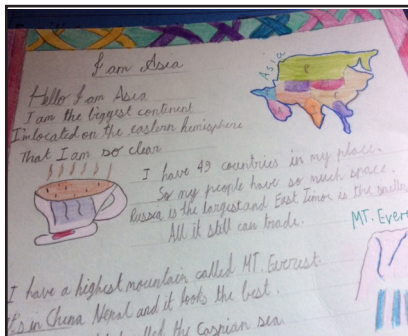 I am Asia
Asia
Hello I am Asia
I am the biggest continent
I'm located on the eastern hemisphere
That I am so clear
I have 49 countries in my place.
So my people have so much space.
Russia is the largest and East Timor is the
All it still can trade.
MT. Ever
I have a highest mountain called MT. Everest.
It's in China Nepal and it looks the best.
called the Caspian sea